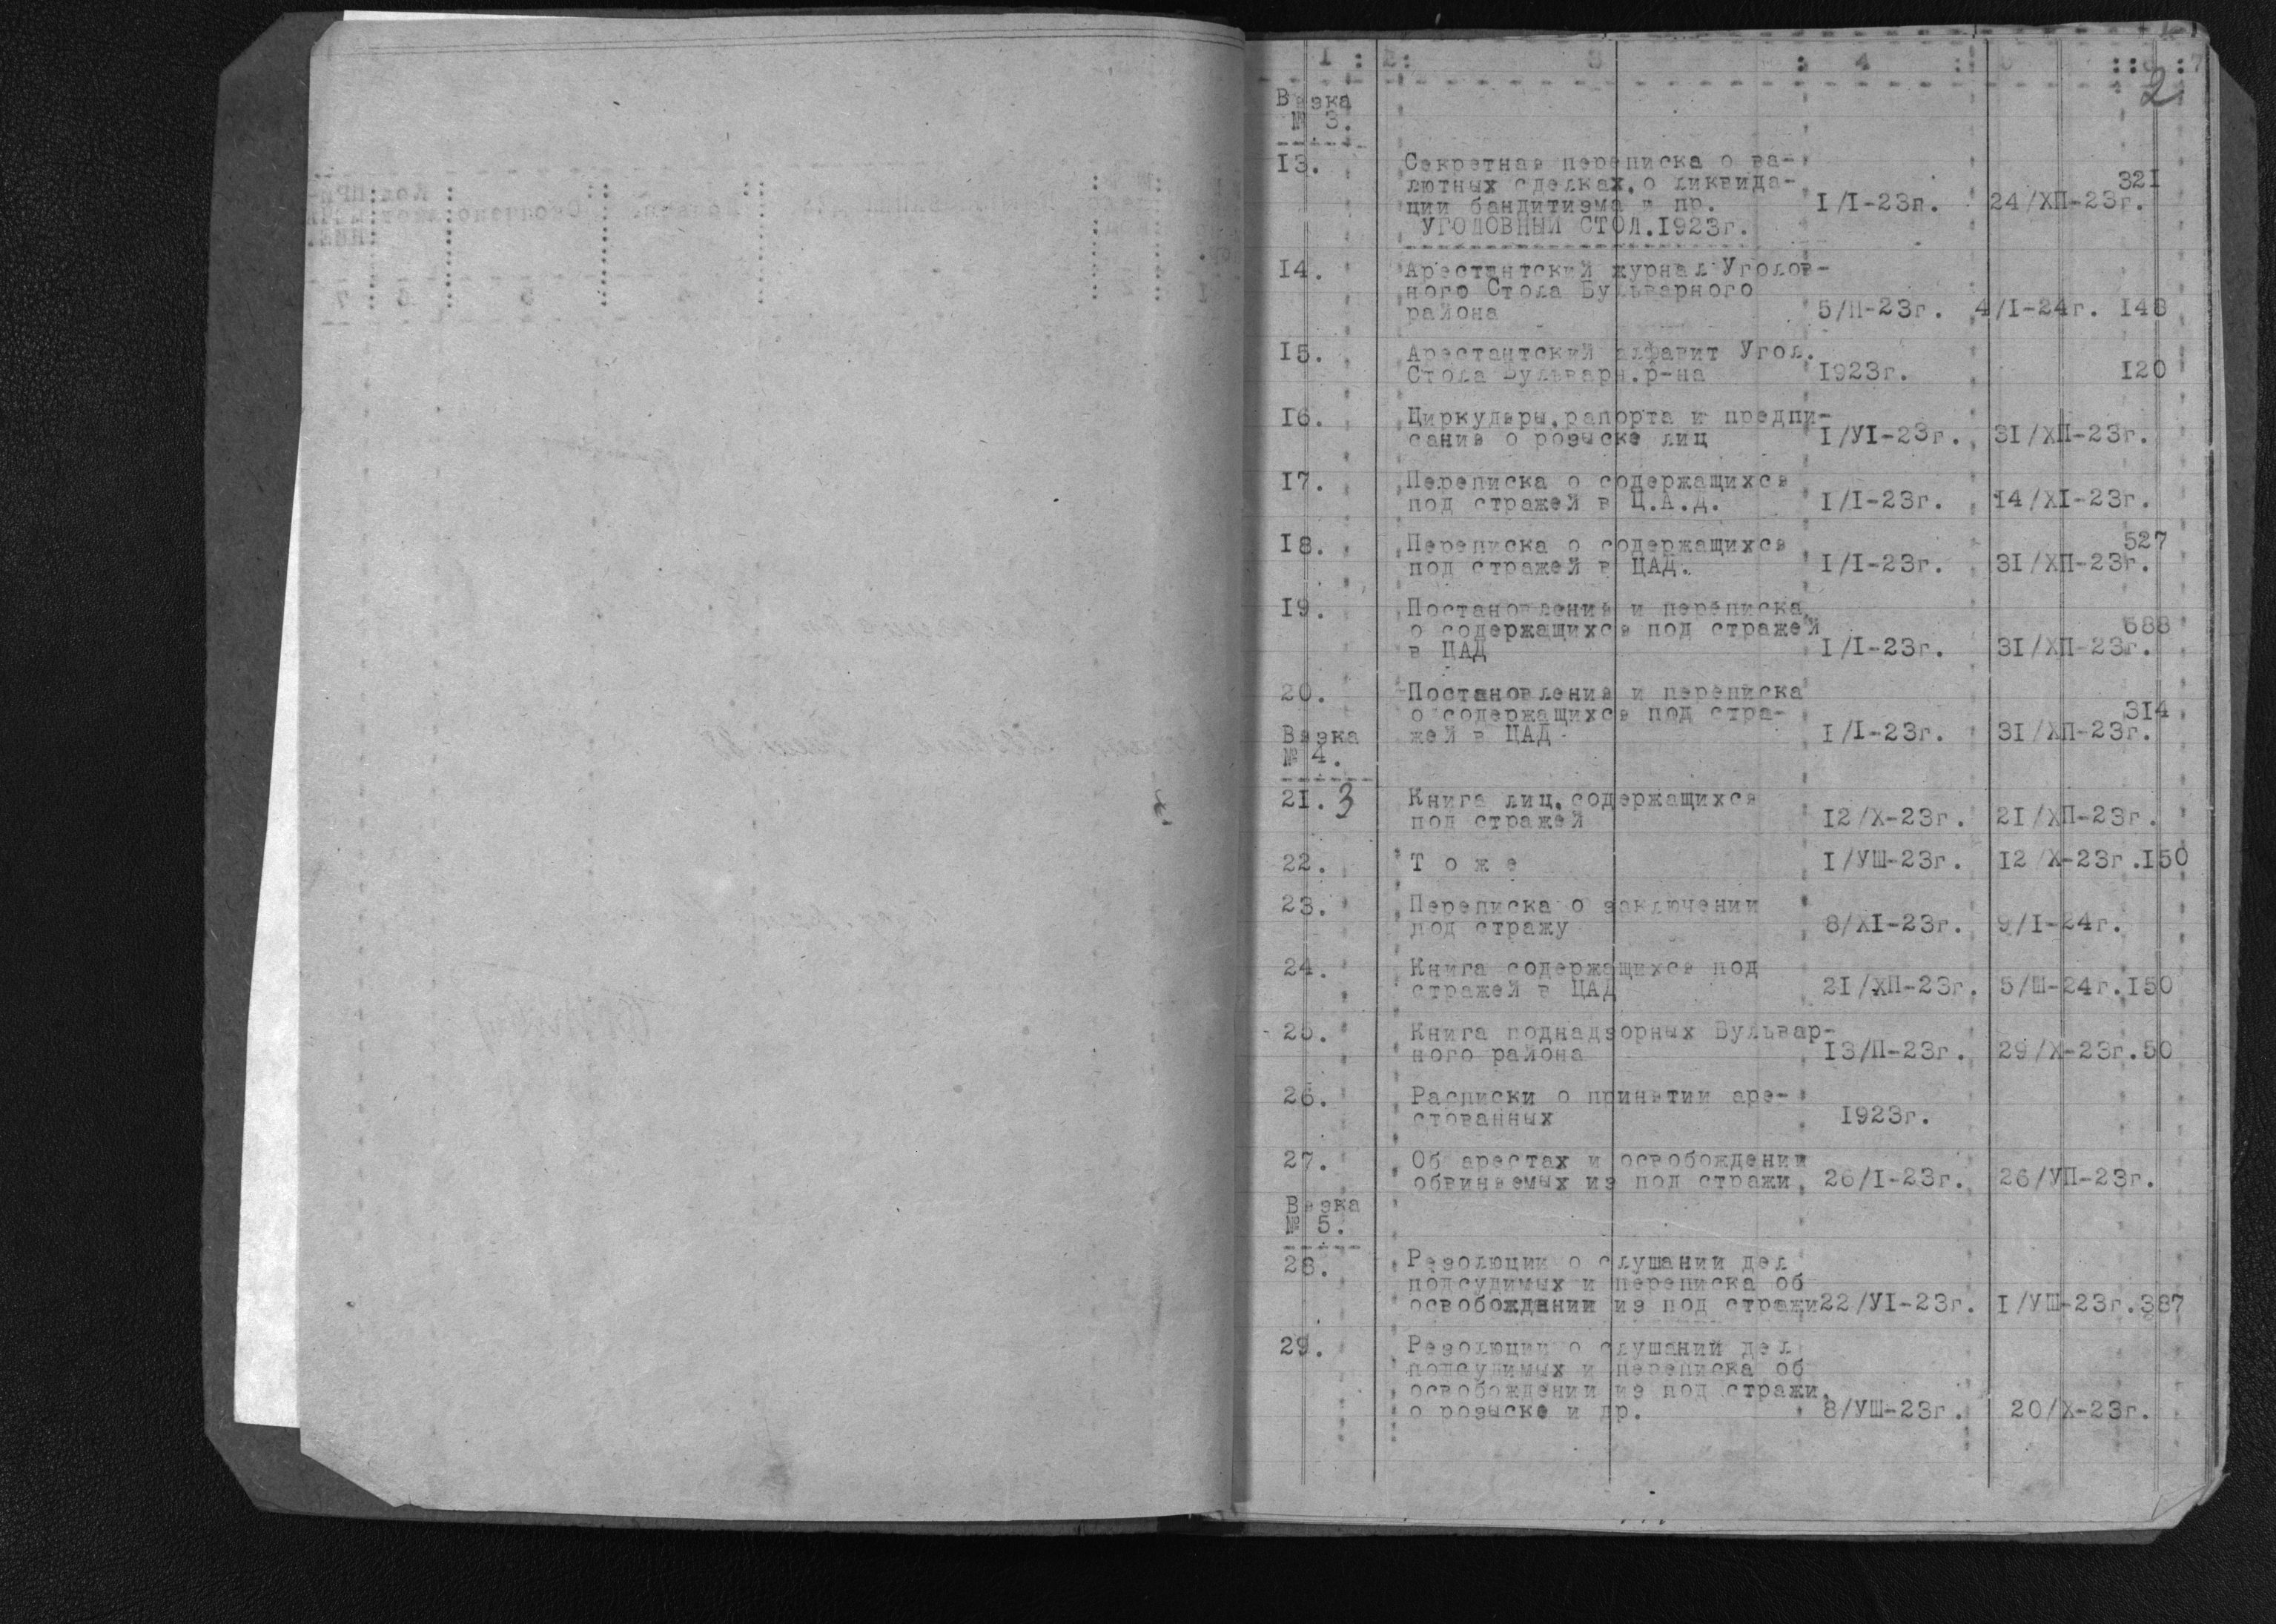 1 : 2: 3 : 4 : 5 :: 6 : 7
2
Вязка
№ 3.
13. Секретная переписка о ва-
лютных сделках, о ликвида-
321
ции бандитизма и пр. I/I-23г. 24/ХП-23г.
УГОЛОВНЫЙ СТОЛ.1923г.
14. Арестантский журнал Уголов-
ного Стола Бульварного
района 5/П-23г. 4/I-24г. 148
15. Арестантский алфавит Угол.
Стола Бульварн.р-на 1923г. 120
16. Циркуляры,рапорта и предпи-
сания о розыске лиц I/УI-23г. 31/ХП-23г.
17. Переписка о содержащихся
под стражей в Ц.А.Д. I/I-23г. 14/ХI-23г.
18. Переписка о содержащихся 527
под стражей в ЦАД. I/I-23г. 31/ХП-23г.
19. Постановления и переписка
о содержащихся под стражей 688
в ЦАД I/I-23г. 31/ХП-23г.
20. Постановления и переписка
о содержащихся под стра- 314
Вязка жей в ЦАД I/I-23г. 31/ХП-23г.
№ 4.
21. 3 Книга лиц,содержащихся
под стражей 12/Х-23г. 21/ХП-23г.
22. Т о ж е I/УШ-23г. 12/Х-23г.150
23. Переписка о заключении
под стражу 8/ХI-23г. 9/I-24г.
24. Книга содержащихся под
стражей в ЦАД 21/ХП-23г. 5/Ш-24г.150
25. Книга поднадзорных Бульвар-
ного района 13/П-23г. 29/Х-23г.50
26. Расписки о принятии аре-
стованных 1923г.
27. Об арестах и освобождении
обвиняемых из под стражи 26/I-23г. 26/УП-23г.
Вязка
№ 5.
28. Резолюции о слушании дел
подсудимых и переписка об
освобождении из под стражи22/УI-23г. I/УШ-23г.387
29. Резолюции о слушаний дел
подсудимых и переписка об
освобождении из под стражи,
о розыске и др. 8/УШ-23г. 20/Х-23г.